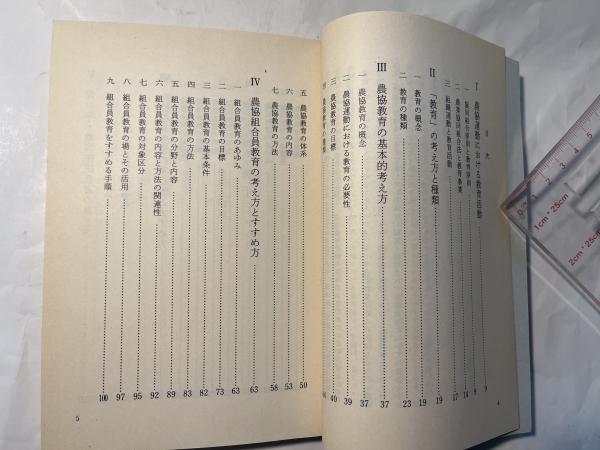 目次
I 農協運動における教育活動……9
一 協同組合原則と教育原則……9
二 農業協同組合法と教育事業……14
三 組織運動と教育活動……17
II 「教育」の考え方と種類……19
一 教育の概念……19
二 教育の種類……23
III 農協教育の基本的考え方……37
一 農協教育の概念……37
二 農協運動における教育の必要性……39
三 農協教育の目標……40
4
五 農協教育の体系……50
六 農協教育の内容……53
七 農協教育の方法……58
IV 農協組合員教育の考え方とすすめ方……63
一 組合員教育のあゆみ……63
二 組合員教育の目標……73
三 組合員教育の基本条件……82
四 組合員教育の方法……83
五 組合員教育の分野と内容……89
六 組合員教育の内容と方法の関連性……92
七 組合員教育の対象区分……95
八 組合員教育の場とその活用……97
九 組合員教育をすすめる手順……100
5
1cm*25cm
2cm*25cm